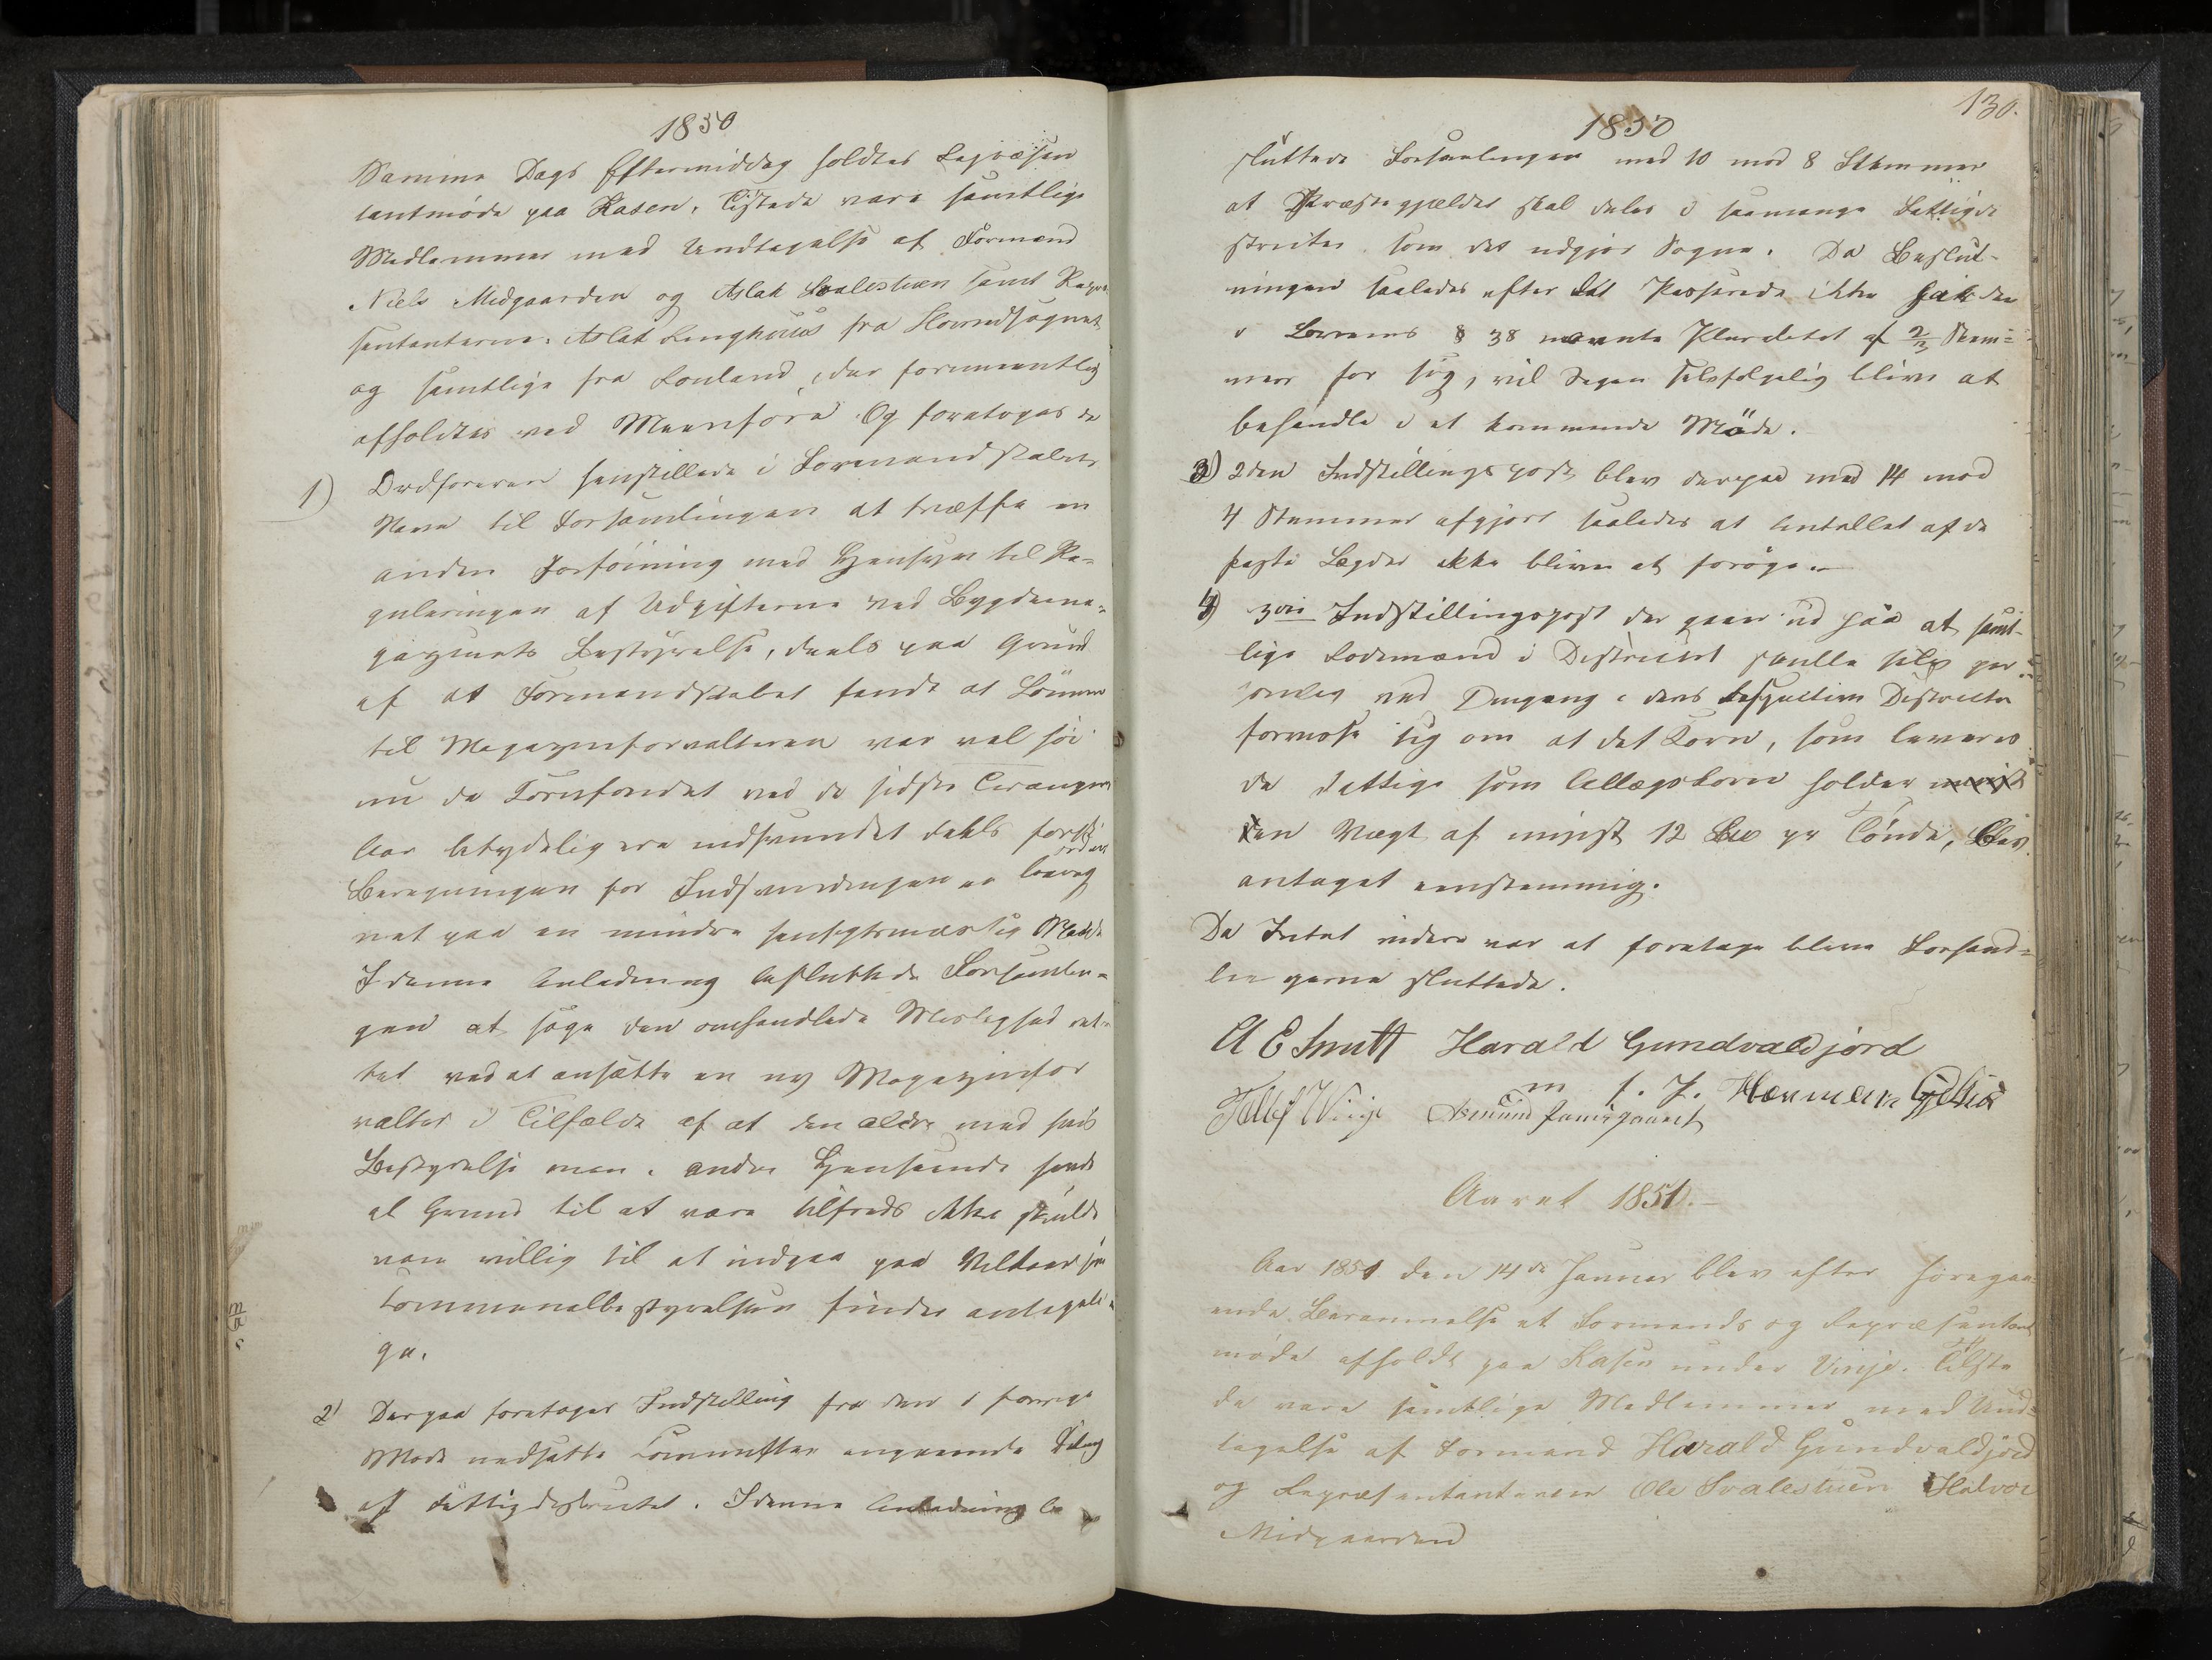 1850
Samme Dags Eftermiddag holdtes Repræsen
tantmöde paa Kasen, Tilstede vare samtlige
Medlemmer med Undtagelse af Formænd
Niels Midgaarden og Aslak Svalestuen samt Repræ
sentanterne: Aslak Longhuus fra Hovedsognet
og samtlige fra Rouland, der formeentlig
afholdtes ved Meenföre. Og foretoges da
1) Ordföreren henstillede i Formandskabets
Navn til Forsamlingen at træffe en
anden Forföining med Hensyn til Re-
guleringen af Udgifterne ved Bygdema-
gazinets Bestyrelse, deels paa Grund
af at Formandskabet fandt at Lönnen
til Magazinforvalteren var vel höi
nu da Kornfondet ved de sidste
har betydelig ere indsvundet deels fordi
Beregningen for Indsvindingen er
net paa en mindre hensigtsmæssig Maade
I denne Anledning besluttede Forsamlin-
gen at söge den omhandlede Mislighed ret-
tet ved at ansætte en ny Magazinfor
valter i Tilfælde af at den ældre med hvis
Bestyrelse man i andre Henseende havde
al Grund til at være tilfreds ikke skulde
være villig til at indgaa paa Vilkaar som
Communalbestyrelsen finder antageli-
ge.
2) Derpaa foretoges Indstilling fra den i forrige
Möde nedsatte Committee angaaende Deling
af Fattigdistriktet. I denne Anledning be
130.
1850
sluttede Forsamlingen med 10 mod 8 Stemmer
at Præstegjældet skal deles i saamange Fattigdi
strikter som det udgjör Sogne. Da Beslut-
ningen saaledes efter det Passerede ikke har den
i Lovens § 38 nævnte Pluralitet af 2/3 Stem=
mer for sig, vil Sagen selvfölgelig blive at
behandle i et kommende Möde.
3) 2den Indstillingspost blev derpaa med 14 mod
4 Stemmer afgjort saaledes at Antallet af de
faste Lægder ikke bliver at foröge.
4) 3die Indstillingspost der gaar ud paa at samt-
lige Rodemænd i Districtet skulle selv per-
sonlig ved Omgang i deres respective Districter
forvisse sig om at det Korn, som leveres
de fattige som Allægskorn holder
den Vægt af mindst 12 Lb pr Tönde, blev
antaget eenstemmig.
Da Intet videre var at foretage bleve Forhand=
lingerne sluttede.
A E Smitt Harald Gundvaldjord
Tallef Winje m f. P. Hermann Gjelhus
Asmund
Aaret 1851.
Aar 1851 den 14de Januar blev efter foregaa
ende Berammelse et Formands og Repræsentant
möde afholdt paa Kasen under Vinje. Tilste
de vare samtlige Medlemmer med Und=
tagelse af Formand Harald Gundvaldjord
og Repræsentanterne Ole Svalestuen Halvor
Midgaarden